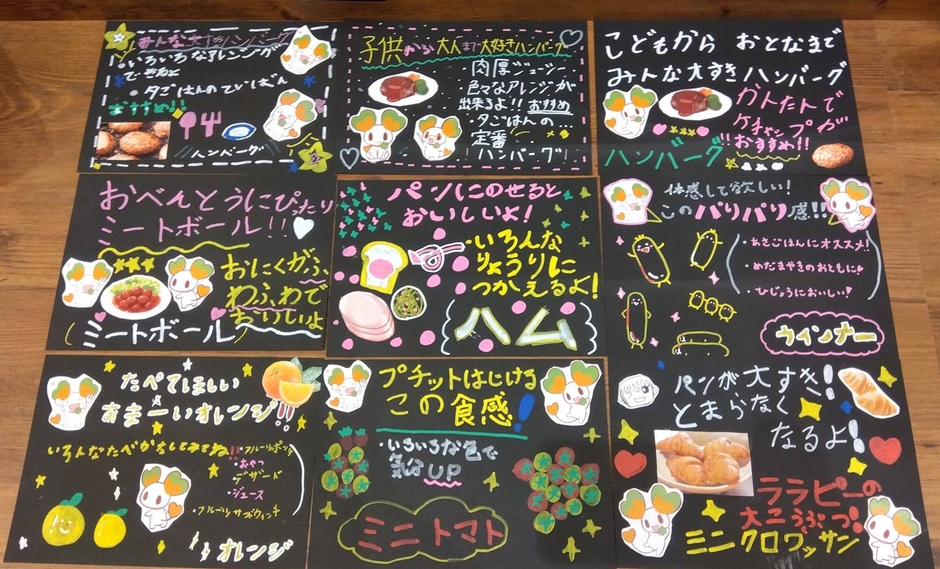 みんな大すきハンバーグ
・いろいろなアレンジが
できるよ
・夕ごはんのていばん
おすすめ!!
ハンバーグ
子供から大人まで大好きハンバーグ
肉厚ジューシー
色々なアレンジが
出来るよ!! おすすめ
・夕ごはんの
定番
ハンバーグ!
こどもから おとなまで
みんな大すきハンバーグ
かんたんで
ケチャップが
おすすめ!!
ハンバーグ
おべんとうにぴったり
ミートボール!!
おにくがふ
わふわで
おいしいよ
ミートボール
パンにのせると
おいしいよ!
・いろんな
りょうりに
つかえるよ!
ハム
体感して欲しい!
このパリパリ感!!
・あさごはんにオススメ!
・めだまやきのおともに
・ひじょうにおいしい!
ウィンナー
たべてほしい
あまーいオレンジ!!
いろんなたべかたしてみてね!!
・フルーツポンチ
・おやつ
・デザート
・ジュース
・フルーツサンドウィッチ
オレンジ
プチットはじける
この食感!
・いろいろな色で
気分UP
ミニトマト
パンが大すき!
とまらなく
なるよ!
ララピーの
大こうぶつ!
ミニクロワッサン